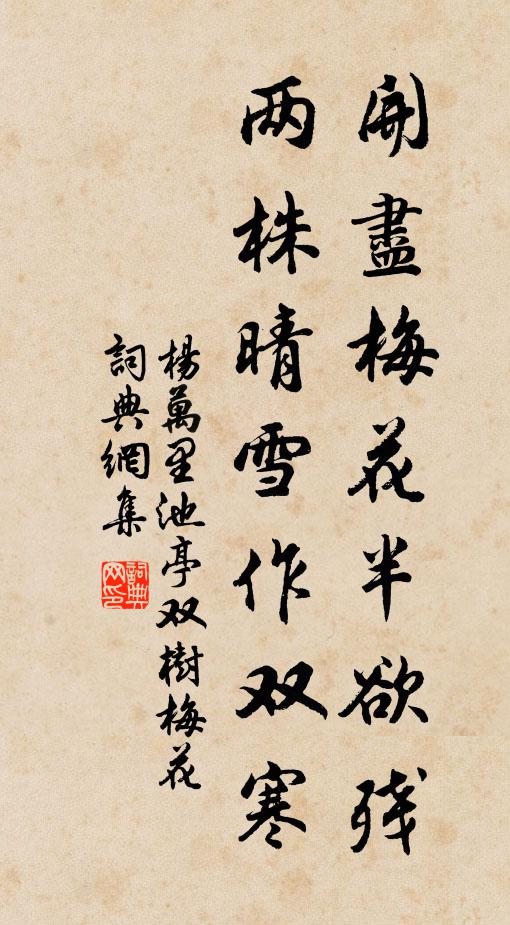 開盡梅花半欲残
两株晴雪作双寒
楊萬里池亭双樹梅花
詞典網集
詞典网印